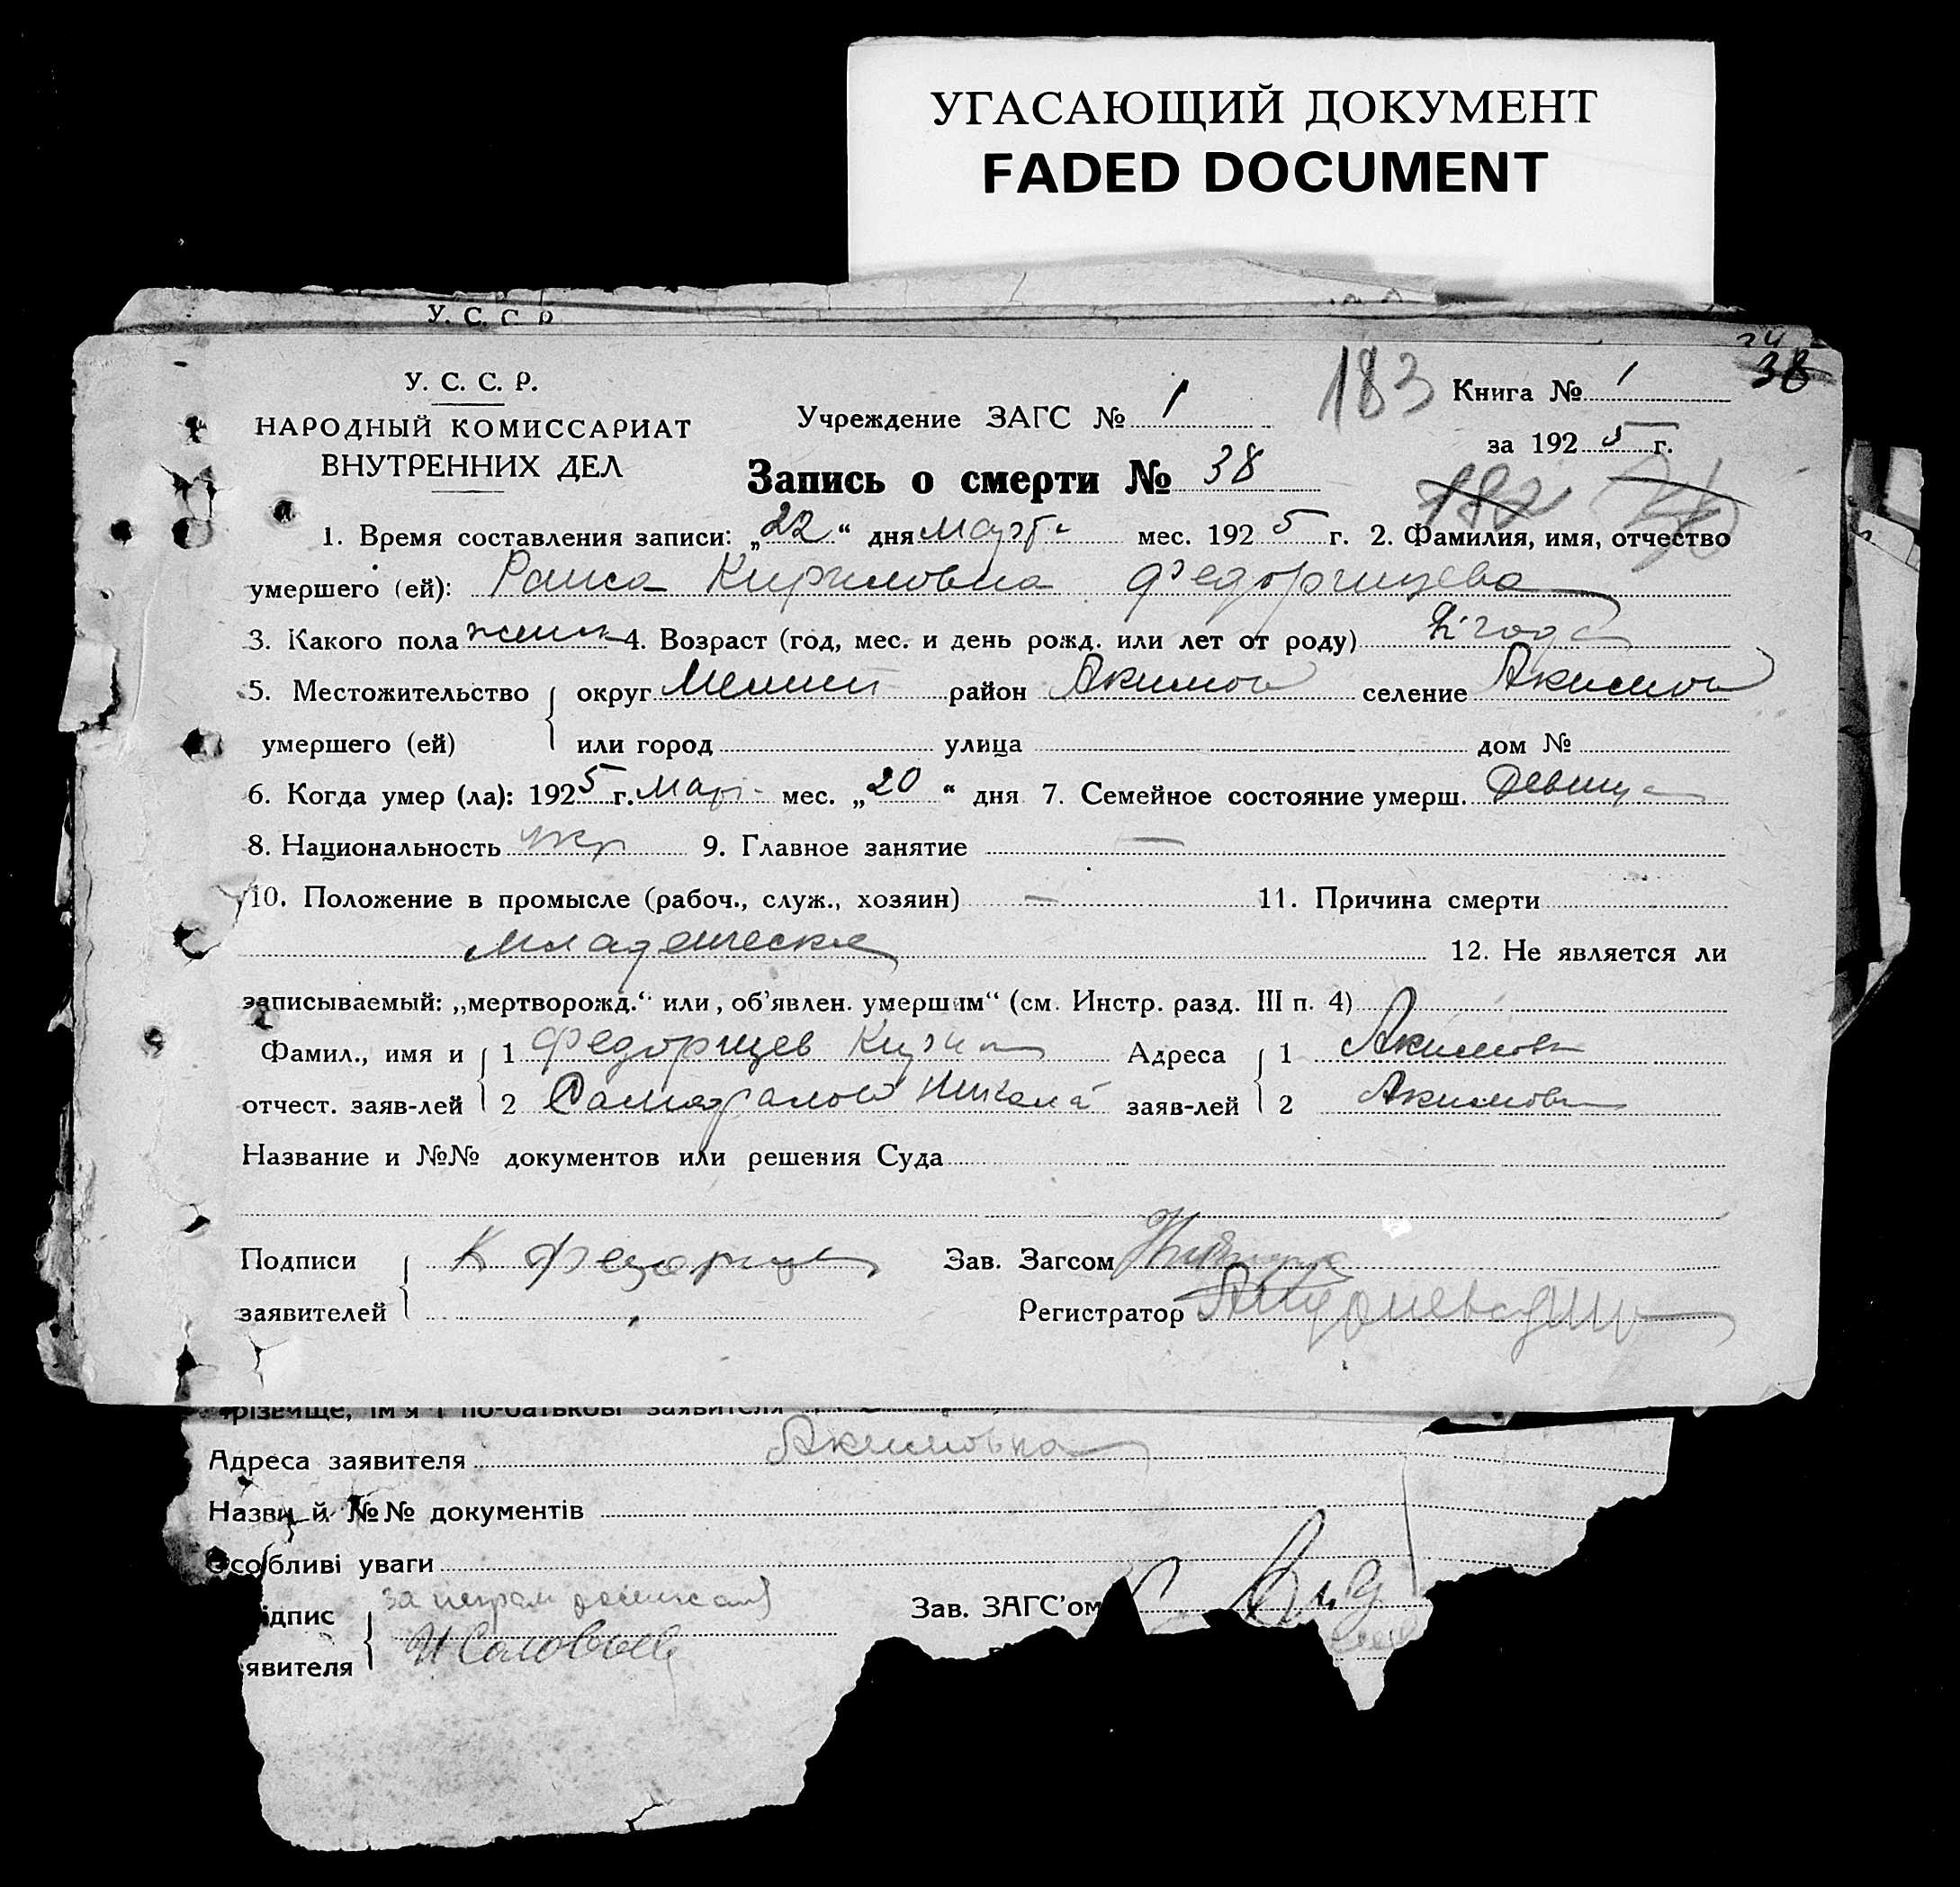 УГАСАЮЩИЙ ДОКУМЕНТ
FADED DOCUMENT
У. С. С. Р.
24
38
У. С. С. Р.
НАРОДНЫЙ КОМИССАРИАТ
ВНУТРЕННИХ ДЕЛ
Учреждение ЗАГС № 1
183
Книга № 1
за 1925 г.
Запись о смерти № 38
182
1. Время составления записи: „22“ дня марта мес. 1925 г. 2. Фамилия, имя, отчество
умершего (ей): Раиса Кириловна Федорищева
3. Какого пола женск 4. Возраст (год, мес. и день рожд. или лет от роду) 2 года
5. Местожительство округ Мелит район Акимов селение Акимов
умершего (ей) или город улица дом №
6. Когда умер (ла): 1925 г. мар мес. „20“ дня 7. Семейное состояние умерш. девица
8. Национальность укр 9. Главное занятие —
10. Положение в промысле (рабоч., служ., хозяин) — 11. Причина смерти
младенческая
12. Не является ли
записываемый: „мертворожд.“ или „об’явлен. умершим“ (см. Инстр. разд. III п. 4)
Фамил., имя и 1 Федорищев Кирил Адреса 1 Акимовк
отчест. заяв-лей 2 заяв-лей 2 Акимовк
Название и №№ документов или решения Суда
Подписи К Федорищев Зав. Загсом
заявителей Регистратор
різвище, ім’я і по-батькові заявителя
Адреса заявителя Акимовка
Назви й №№ документів
Особливі уваги
ідпис за неграм
явителя И Соловьев
Зав. ЗАГС’ом